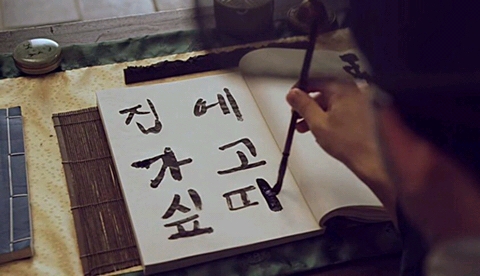 집에
가고
싶띠